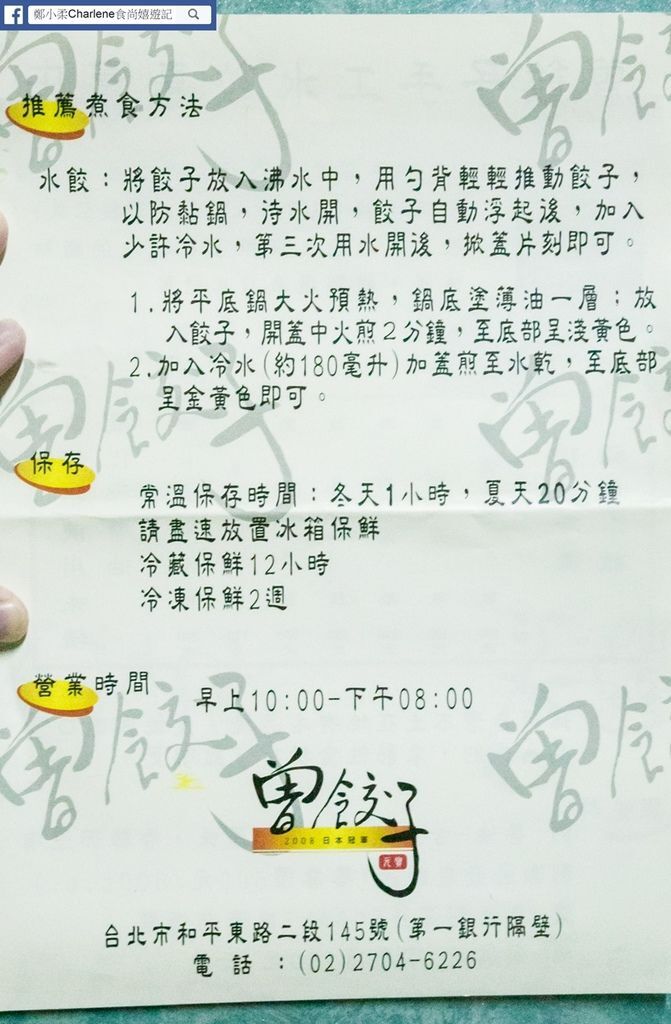 鄭小柔Charlene食尚嬉遊記
推薦煮食方法
水餃：將餃子放入沸水中，用勺背輕輕推動餃子，
以防黏鍋，待水開，餃子自動浮起後，加入
少許冷水，第三次用水開後，掀蓋片刻即可。
1.將平底鍋大火預熱，鍋底塗薄油一層；放
入餃子，開蓋中火煎2分鐘，至底部呈淺黃色。
2.加入冷水(約180毫升)加蓋煎至水乾，至底部
呈金黃色即可。
保存
常溫保存時間：冬天1小時，夏天20分鐘
請盡速放置冰箱保鮮
冷藏保鮮12小時
冷凍保鮮2週
營業時間
早上10:00-下午08:00
曾餃子
2008 日本冠軍
元寶
台北市和平東路二段145號(第一銀行隔壁)
電話 ：(02)2704-6226